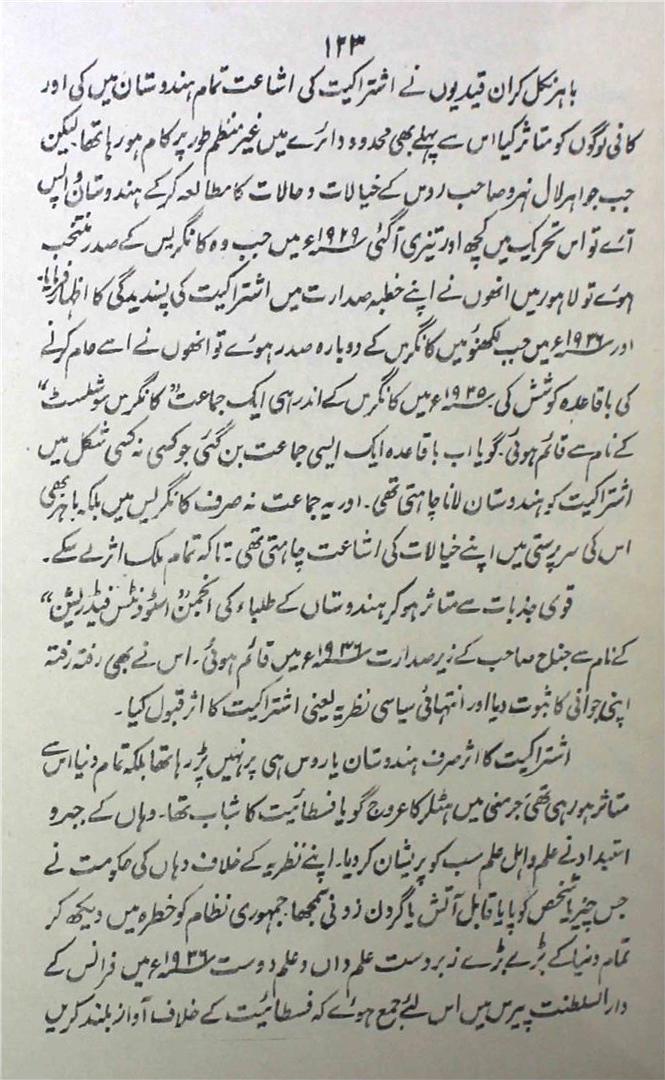 ۱۲۳
باہر نکل کر ان قیدیوں نے اشتراکیت کی اشاعت تمام ہندوستان میں کی اور
کافی لوگوں کو متاثر کیا اس سے پہلے بھی محدود دائرے میں غیر منظم طور پر کام ہو رہا تھا لیکن
جب جواہر لال نہرو صاحب روس کے خیالات و حالات کا مطالعہ کر کے ہندوستان واپس
آئے تو اس تحریک میں کچھ اور تیزی آ گئی ۱۹۲۹ء میں جب وہ کانگریس کے صدر منتخب
ہوئے تو لاہور میں انھوں نے اپنے خطبہ صدارت میں اشتراکیت کی پسندیدگی کا اظہار فرمایا۔
اور ۱۹۳۶ء میں جب لکھنؤ میں کانگرس کے دوبارہ صدر ہوئے تو انھوں نے اسے عام کرنے
کی باقاعدہ کوشش کی ۱۹۳۵ء میں کانگرس کے اندر ہی ایک جماعت "کانگرس سوشلسٹ"
کے نام سے قائم ہوئی۔ گویا اب باقاعدہ ایک ایسی جماعت بن گئی جو کسی نہ کسی شکل میں
اشتراکیت کو ہندوستان لانا چاہتی تھی۔ اور یہ جماعت نہ صرف کانگریس میں بلکہ باہر بھی
اس کی سرپرستی میں اپنے خیالات کی اشاعت چاہتی تھی۔ تاکہ تمام ملک اثر لے سکے۔
قومی جذبات سے متاثر ہو کر ہندوستاں کے طلباء کی انجمن "اسٹوڈنٹس فیڈریشن"
کے نام سے جناح صاحب کے زیر صدارت ۱۹۳۶ء میں قائم ہوئی۔ اس نے بھی رفتہ رفتہ
اپنی جوانی کا ثبوت دیا اور انتہائی سیاسی نظریہ یعنی اشتراکیت کا اثر قبول کیا۔
اشتراکیت کا اثر صرف ہندوستان یا روس ہی پر نہیں پڑ رہا تھا بلکہ تمام دنیا اس سے
متاثر ہو رہی تھی جرمنی میں ہٹلر کا عروج گویا فسطائیت کا شباب تھا۔ وہاں کے جبر و
استبداد نے علم و اہل علم سب کو پریشان کر دیا۔ اپنے نظریہ کے خلاف وہاں کی حکومت نے
جس چیز یا شخص کو پایا قابل آتش یا گردن زدنی سمجھا۔ جمہوری نظام کو خطرہ میں دیکھ کر
تمام دنیا کے بڑے بڑے زبردست علم داں و علم دوست ۱۹۳۶ء میں فرانس کے
دارالسلطنت پیرس میں اس لئے جمع ہوئے کہ فسطائیت کے خلاف آواز بلند کریں